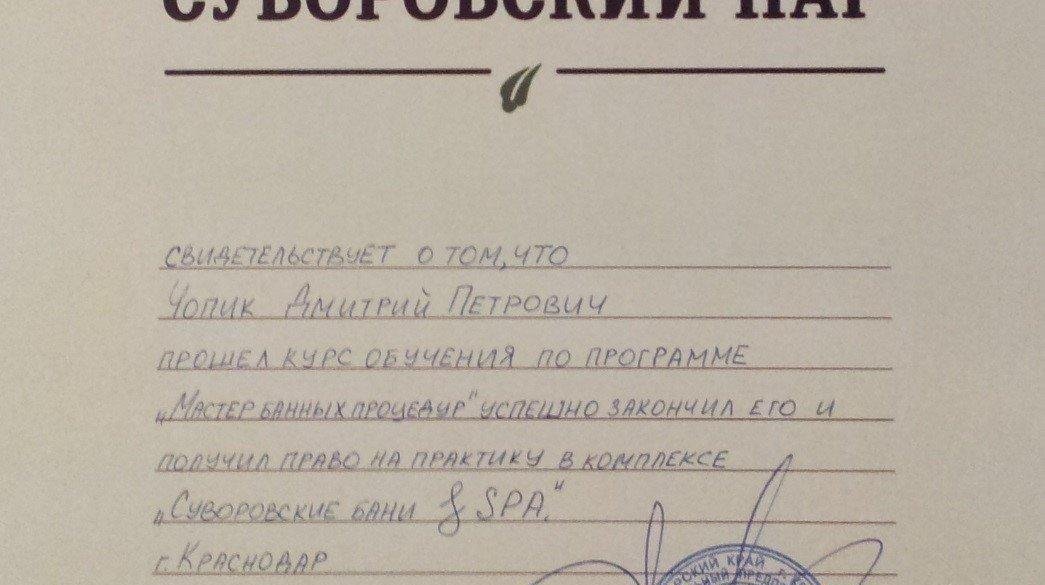 СУВОРОВСКИЙ ПАР
СВИДЕТЕЛЬСТВУЕТ О ТОМ, ЧТО
ЧОПИК ДМИТРИЙ ПЕТРОВИЧ
ПРОШЕЛ КУРС ОБУЧЕНИЯ ПО ПРОГРАММЕ
„МАСТЕР БАННЫХ ПРОЦЕДУР" УСПЕШНО ЗАКОНЧИЛ ЕГО И
ПОЛУЧИЛ ПРАВО НА ПРАКТИКУ В КОМПЛЕКСЕ
„СУВОРОВСКИЕ БАНИ & SPA."
г. КРАСНОДАР
КРАЙ г.